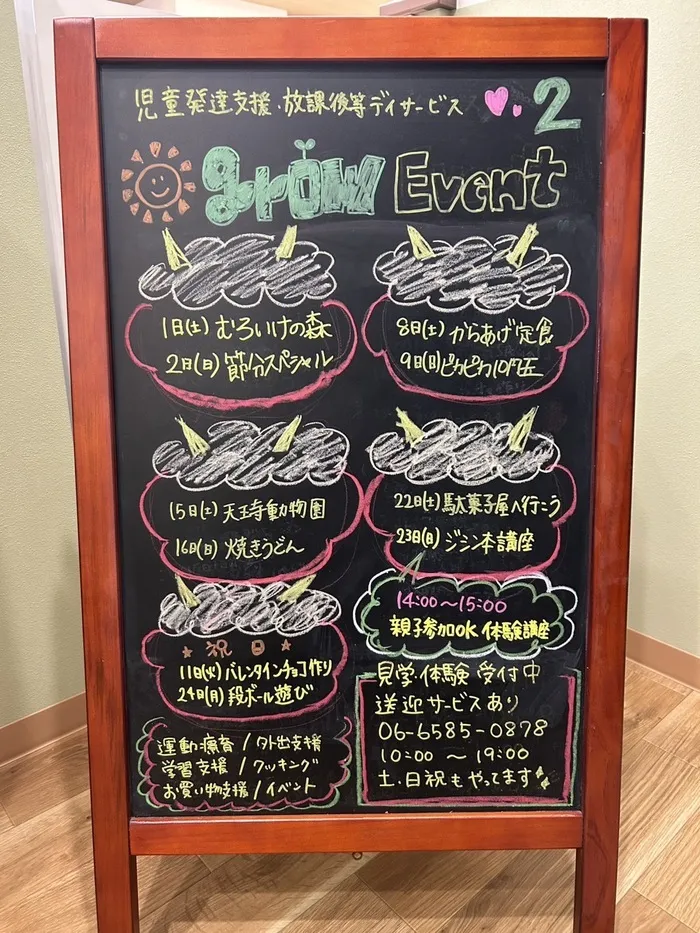 児童発達支援・放課後等デイサービス
2
grow Event
1日(土) むろいけの森
2日(日) 節分スペシャル
8日(土) からあげ定食
9日(日) ピカピカ10円玉
15日(土) 天王寺動物園
16日(日) 焼きうどん
22日(土) 駄菓子屋へ行こう
23日(日) ジシン本講座
14:00〜15:00
親子参加OK 体験講座
祝日
11日(火) バレンタインチョコ作り
24日(月) 段ボール遊び
運動療育/外出支援
学習支援/クッキング
お買い物支援/イベント
見学・体験 受付中
送迎サービスあり
06-6585-0878
10:00 〜 19:00
土・日祝もやってます